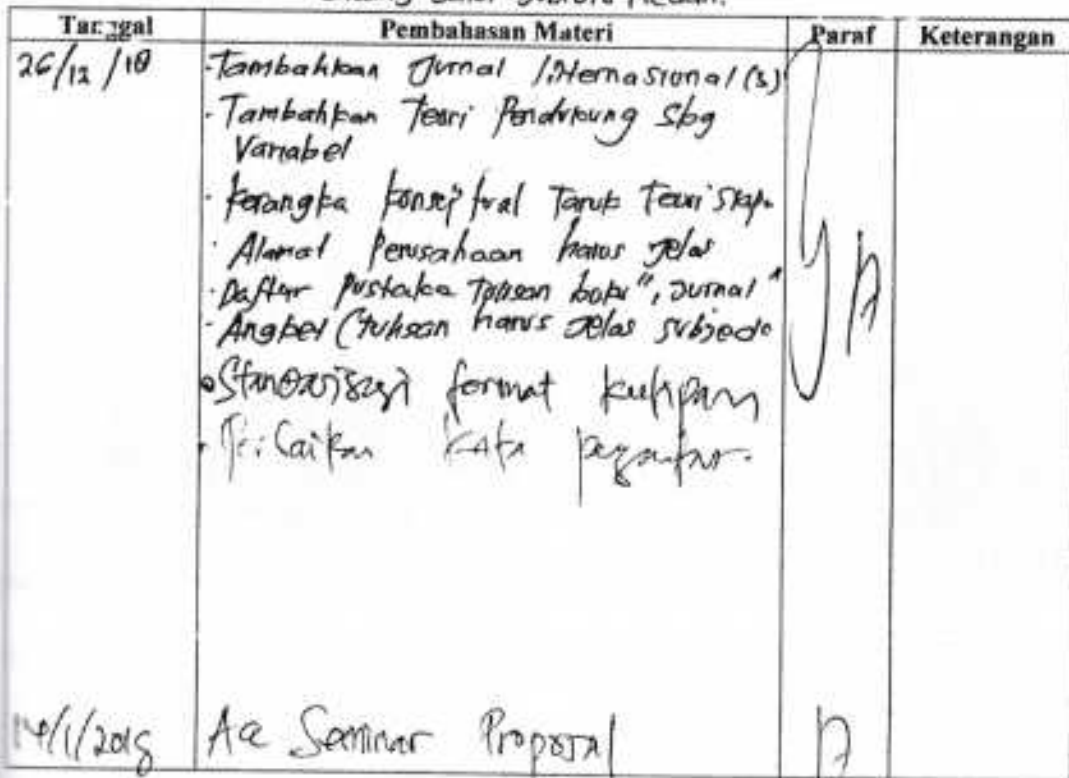 Medan.
Tanggal Pembahasan Materi Paraf Keterangan
26/12/18 - Tambahkan Jurnal Internasional (3)
- Tambahkan Teori Pendukung Sbg
Variabel
- Kerangka konseptual Taruk Teori
- Alamat Perusahaan harus jelas
- Daftar Pustaka Tulisan buku", Jurnal"
- Angket (tulisan harus jelas
format kutipan
kata pengantar.
Acc Seminar Proposal